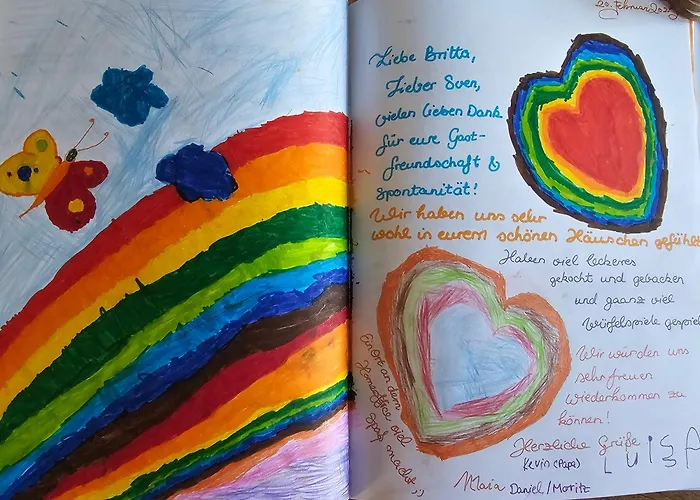 20. Februar 2025
Liebe Britta,
Lieber Sven,
vielen lieben Dank
für eure Gast-
freundschaft &
Spontanität!
Wir haben uns sehr
wohl in eurem schönen Häuschen gefühlt
Haben viel leckeres
gekocht und gebacken
und gaanz viel
Würfelspiele gespiel
Ein Ort an dem
Homeoffice viel
Spaß macht ;)
Wir würden uns
sehr freuen
wiederkommen zu
können!
Herzliche Grüße
Kevin (Papa) LUISA
Maia Daniel / Moritz